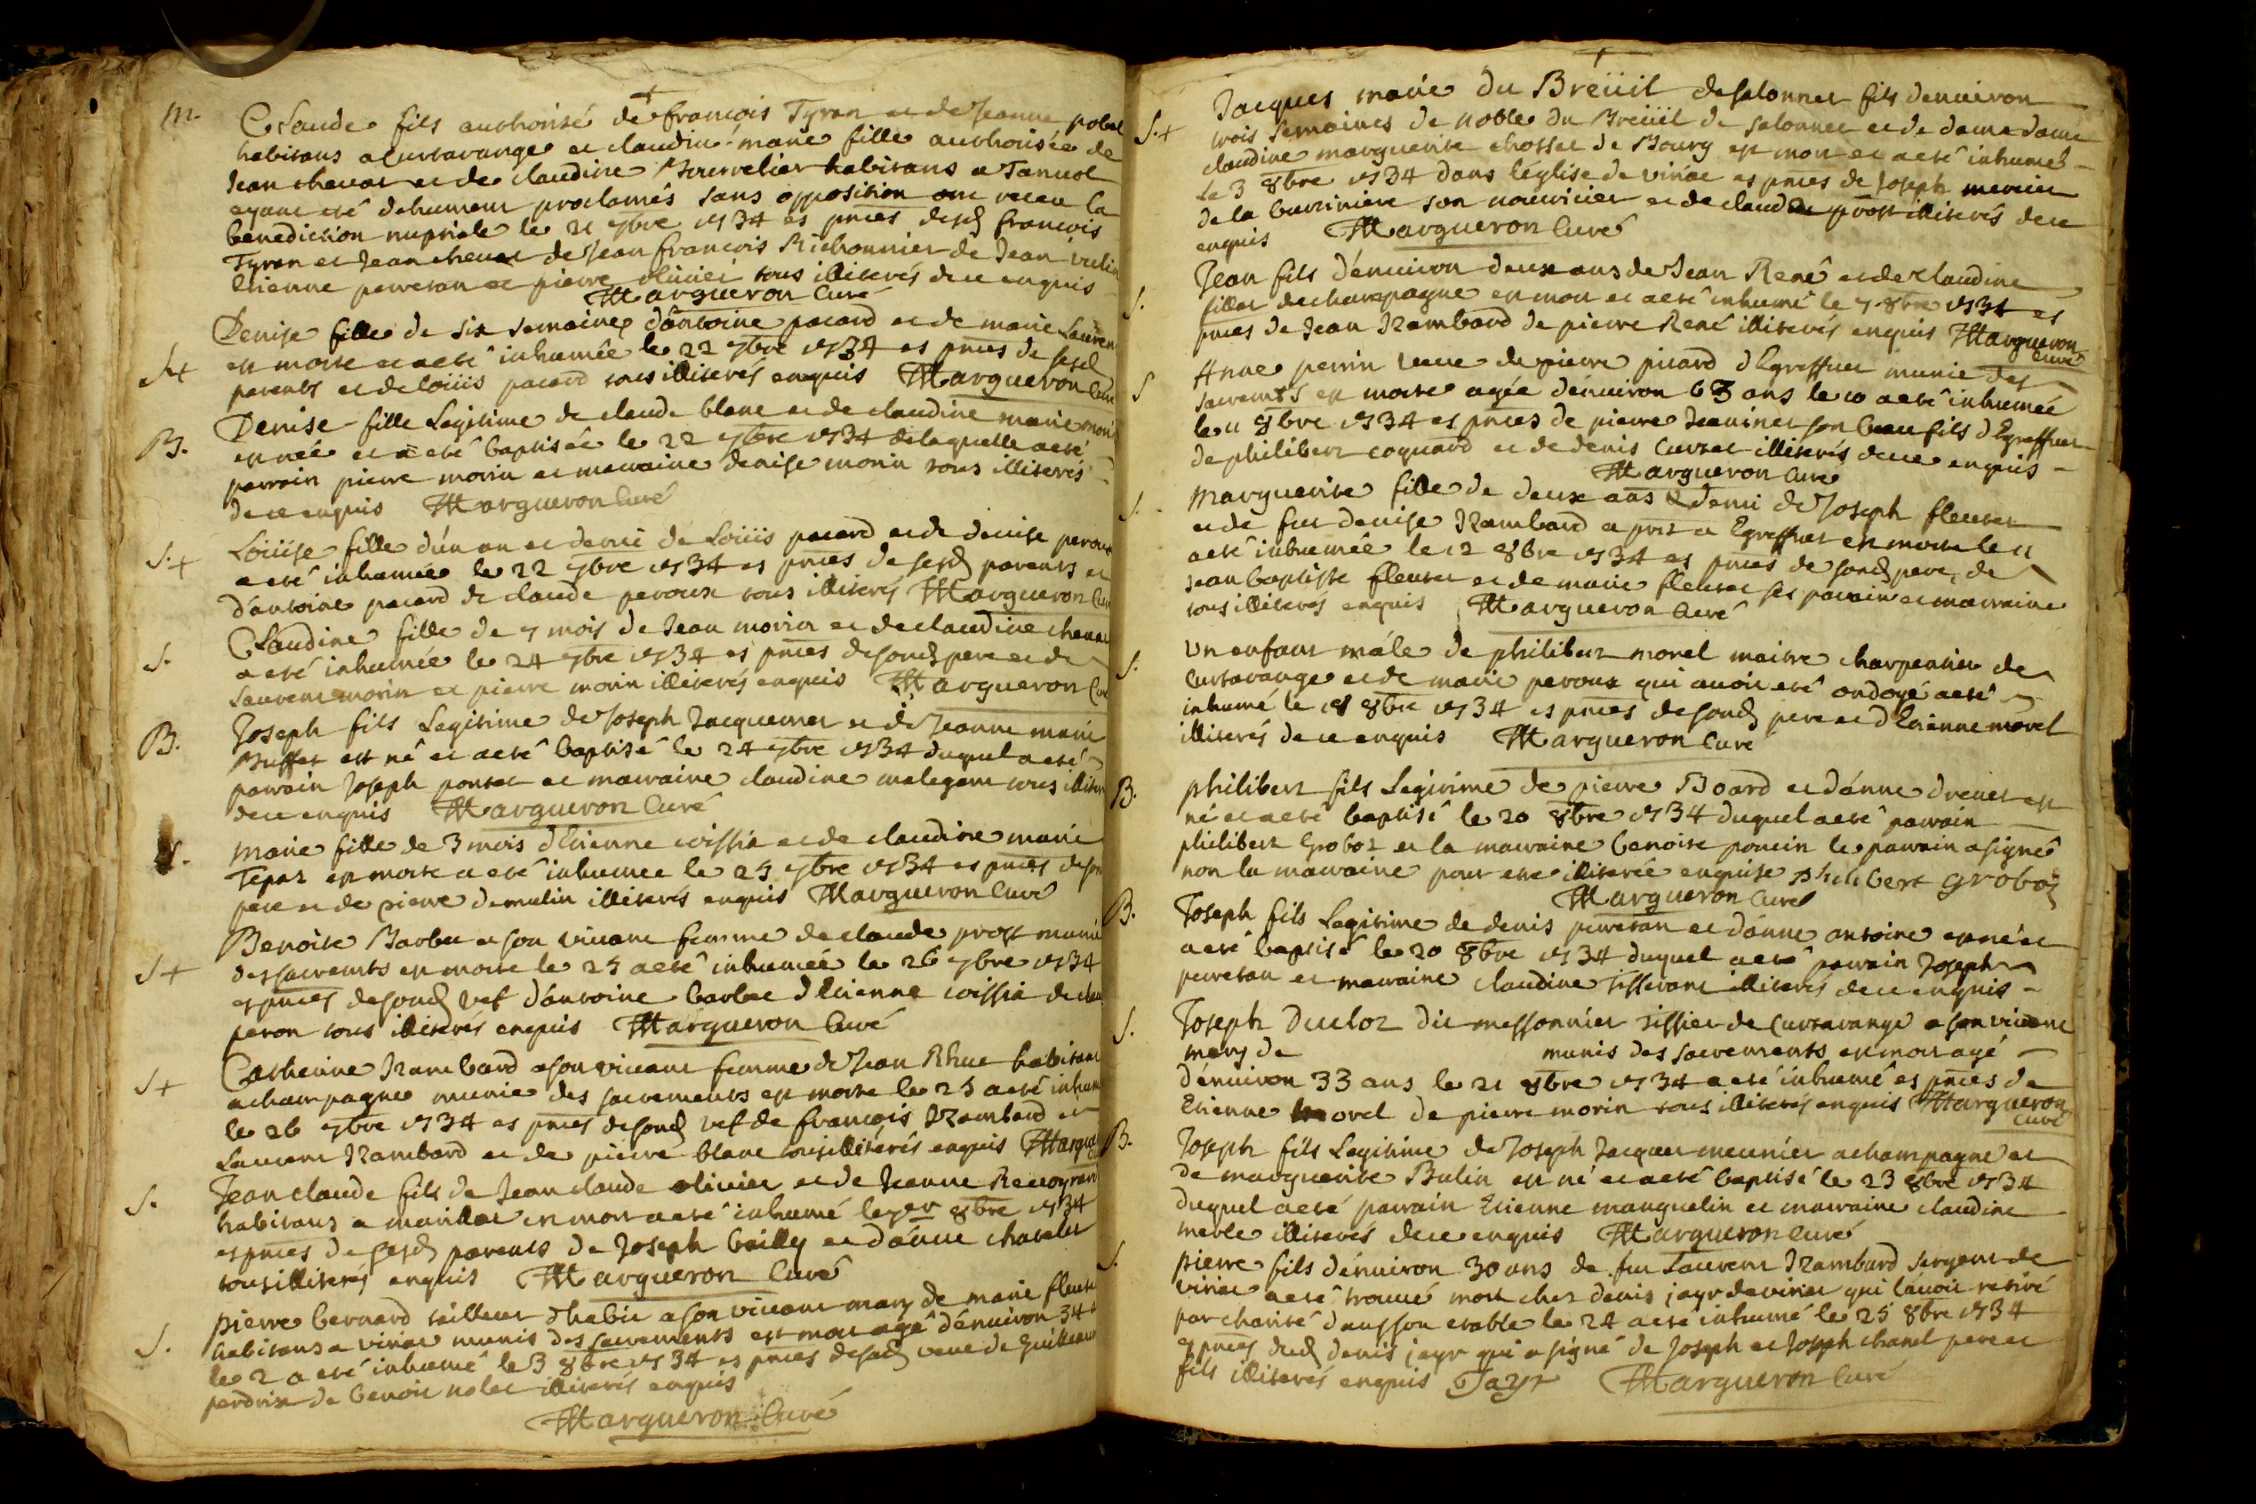 M. Claude fils authorisé de françois Tyran et de Jeanne pobel
habitans a Curtavange et claudine marie fille authorisée de
Jean chevat et de claudine habitans a Tanvol
ayant eté duhument proclamés sans opposition ont receu la
benediction nuptiale le 21 7bre 1734 es pnces desd françois
Tyran et Jean chevat de Jean françois Richonnier de Jean
Etienne perretan et pierre olivier tous illiterés de ce enquis
Margueron Curé
S+ Denise fille de six semaines d'antoine pacard et de marie Lauren
est morte et a eté inhumée le 22 7bre 1734 es pnces de sesd
parents et de loüis pacard tous illiterés enquis Margueron Curé
B. Denise fille Legitime de claude blanc et de claudine marie mori
est née et a eté baptisée le 22 7bre 1734 de laquelle a eté
parrain pierre morin et marraine denise morin tous illiterés
de ce enquis Margueron Curé
S.+ Loüise fille d'un an et demi de Loüis pacard et de denise peroux
a eté inhumée le 22 7bre 1734 es pnces de sesd parents et
d'antoine pacard de claude peroux tous illiterés Margueron Curé
S. Claudine fille de 7 mois de Jean morin et de claudine
a eté inhumée le 24 7bre 1734 es pnces de sond pere et de
Laurent morin et pierre morin illiterés enquis Margueron Curé
B. Joseph fils Legitime de Joseph Jacquemet et de Jeanne marie
Buffet est né et a eté baptisé le 24 7bre 1734 duquel a eté
parrain Joseph ponset et marraine claudine malegent tous
de ce enquis Margueron Curé
S. marie fille de 3 mois d'Etienne coissia et de claudine marie
Tepaz est morte a eté inhumée le 25 7bre 1734 es pnces de son
pere et de pierre demulin illiterés enquis Margueron Curé
S+ Benoite Barbet a son vivant femme de claude prost munie
des sacremts est morte le 25 a eté inhumée le 26 7bre 1734
es pnces de sond vef d'antoine barbet d'Etienne coissia de
peron tous illiterés enquis Margueron Curé
S+ Catherine Rambard a son vivant femme de Jean Rhue habitant
a champagne munie des sacrements est morte le 25 a eté
le 26 7bre 1734 es pnces de sond vef de françois Rambard et
Laurent Rambard et de pierre blanc tous illiterés enquis
S. Jean claude fils de Jean claude olivier et de Jeanne
habitans a marillat est mort a eté inhumé le 1er 8bre 1734
es pnces de sesd parents de Joseph bailly et d'anne chatelet
tous illiterés enquis Margueron Curé
S. pierre bernard tailleur d'habit a son vivant mary de marie
habitans a viriat munis des sacrements est mort agé d'environ 34
le 2 a eté inhumé le 3 8bre 1734 es pnces de sad veuve de Guillaume
perdrix de benoit nolet illiterés enquis
Margueron Curé
S.+ Jacques marie Du Breüil de salonnet fils d'environ
trois semaines de noble du Breüil de salonnet et de dame dame
claudine marguerite chossat de Bourg est mort et a eté inhumé
Le 3 8bre 1734 dans l'église de viriat es pnces de Joseph mercier
de la son nourricier et de claude prost illiterés de ce
enquis Margueron Curé
S. Jean fils d'environ deux ans de Jean René et de claudine
fillet de champagne est mort et a eté inhumé le 7 8bre 1734 es
pnces de Jean Rambard de pierre René illiterés enquis Margueron
Curé
S Anne perrin veuve de pierre picard d'Egreffier munie des
sacremts est morte agée d'environ 63 ans le 10 a eté inhumée
le 11 8bre 1734 es pnces de pierre Jeaninet son beau fils d'Egreffier
de philibert coquard et de denis Curtet illiterés de ce enquis
Margueron Curé
S. Marguerite fille de deux ans & demi de Joseph fleuret
et de fut denise Rambard a prst a Egreffier est morte le 11
a eté inhumée le 12 8bre 1734 es pnces de sond pere, de
Jean baptiste fleuret et de marie fleuret ses parrain et marraine
tous illiterés enquis Margueron Curé
S. Un enfant mâle de philibert morel maitre charpentier de
Curtavange et de marie peroux qui avoit eté ondoyé a eté
inhumé le 18 8bre 1734 es pnces de sond pere et d'Etienne morel
illiterés de ce enquis Margueron Curé
B. philibert fils Legitime de pierre Board et d'anne drevet est
né et a eté baptisé le 20 8bre 1734 duquel a eté parrain
philibert Groboz et la marraine benoite poncin le parrain a signé
non la marraine pour etre illiterée enquise philibert groboz
Margueron Curé
B. Joseph fils Legitime de denis perretan et d'anne antoine est né et
a eté baptisé le 20 8bre 1734 duquel a eté parrain Joseph
perretan et marraine claudine Tisserant illiterés de ce enquis
S. Joseph Ducloz dit messonnier tissier de Curtavange a son vivant
mary de munis des sacrements est mort agé
d'environ 33 ans le 21 8bre 1734 a eté inhumé es pnces de
Etienne morel de pierre morin tous illiterés enquis Margueron
Curé
B. Joseph fils Legitime de Joseph Jacquet meunier a champagne et
de marguerite Bulin est né et a eté baptisé le 23 8bre 1734
duquel a eté parrain Etienne manguelin et marraine claudine
merle illiterés de ce enquis Margueron Curé
S. pierre fils d'environ 30 ans de fut Laurent Rambard sergent de
viriat a eté trouvé mort chez denis jayr de viriat qui l'avoit retiré
par charité dans son etable le 24 a eté inhumé le 25 8bre 1734
es pnces dud denis jayr qui a signé de Joseph et Joseph chanel pere et
fils illiterés enquis Jayr Margueron Curé